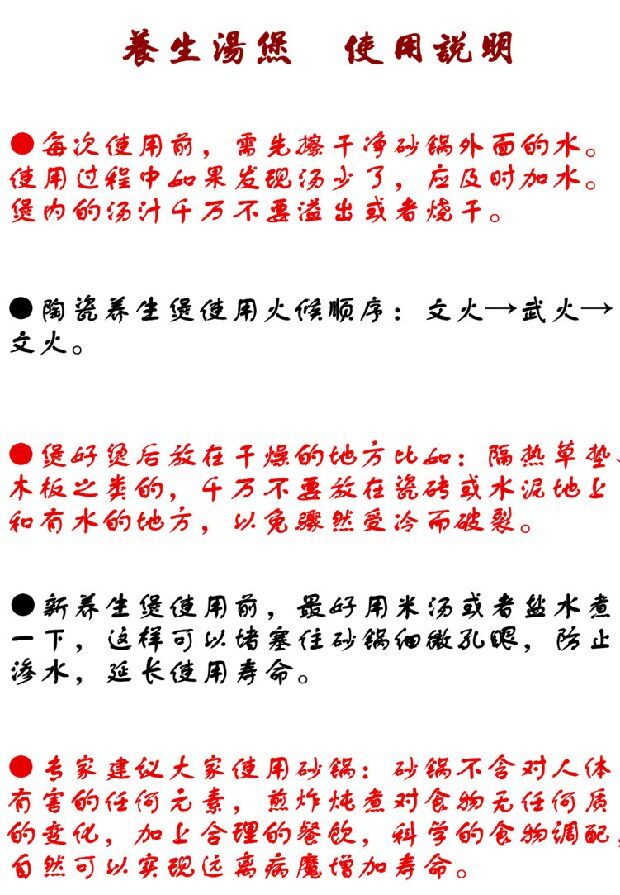 養生湯煲 使用說明
●每次使用前，需先擦干净砂锅外面的水。
使用过程中如果发现汤少了，应及时加水。
煲内的汤汁千万不要溢出或者烧干。
●陶瓷养生煲使用火候顺序：文火→武火→
文火。
●煲好煲后放在干燥的地方比如：隔热草垫、
木板之类的，千万不要放在瓷砖或水泥地上
和有水的地方，以免骤然受冷而破裂。
●新养生煲使用前，最好用米汤或者盐水煮
一下，这样可以堵塞住砂锅细微孔眼，防止
渗水，延长使用寿命。
●专家建议大家使用砂锅：砂锅不含对人体
有害的任何元素，煎炸炖煮对食物无任何质
的变化，加上合理的餐饮，科学的食物调配，
自然可以实现远离病魔增加寿命。